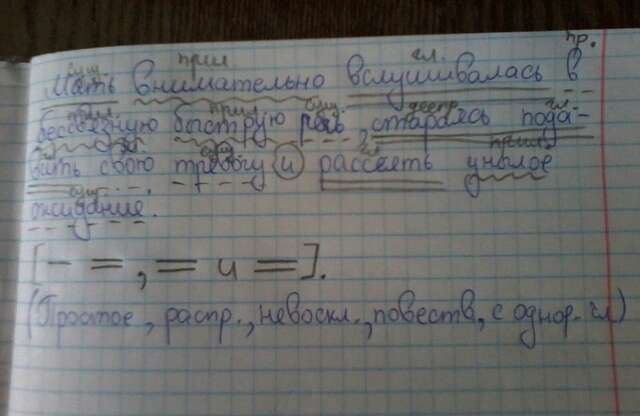 сущ. прил. гл. пр.
Мать внимательно вслушивалась в
прил. прил. сущ. деепр. гл.
бессвязную быструю речь, стараясь пода-
вить свою тревогу и рассеять унылое
сущ.
ожидание.
[— =, = и =].
(Простое, распр., невоскл., повеств, с однор. гл)